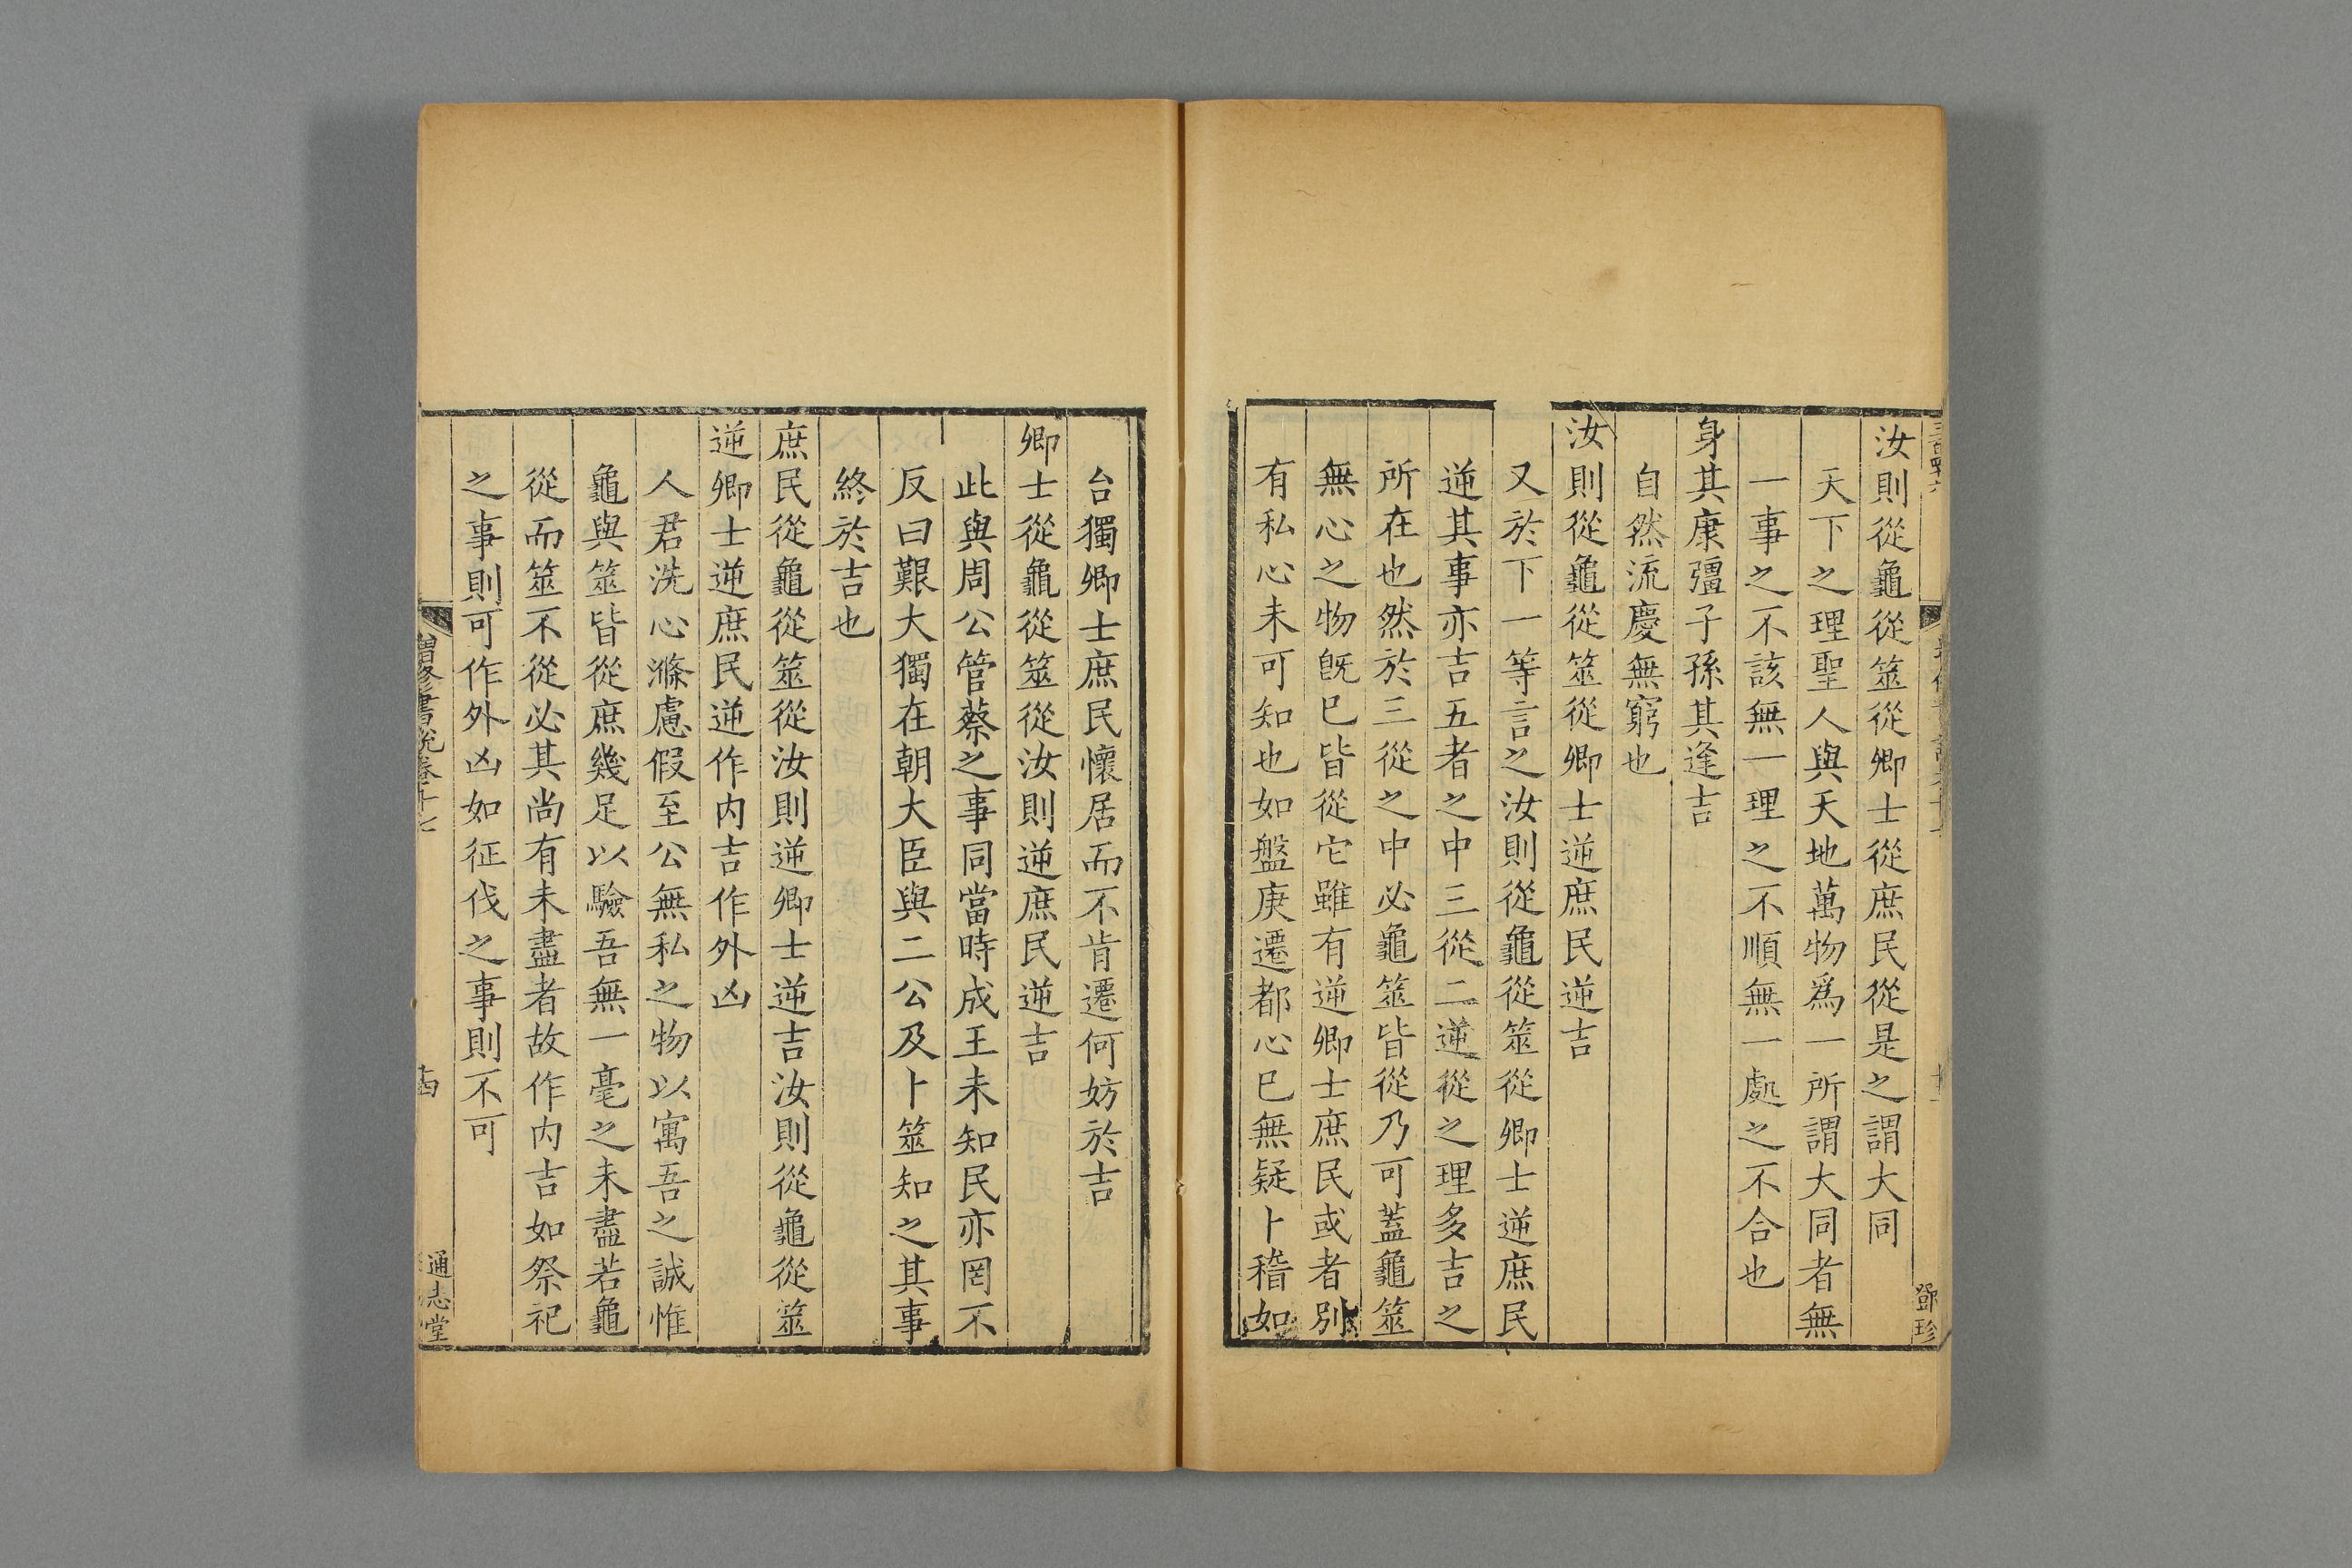 汝則從龜從筮從卿士從庶民從是之謂大同
天下之理聖人與天地萬物爲一所謂大同者無
一事之不該無一理之不順無一處之不合也
身其康彊子孫其逢吉
自然流慶無窮也
汝則從龜從筮從卿士逆庶民逆吉
又於下一等言之汝則從龜從筮從卿士逆庶民
逆其事亦吉五者之中三從二逆從之理多吉之
所在也然於三從之中必龜筮皆從乃可蓋龜筮
無心之物旣巳皆從它雖有逆卿士庶民或者別
有私心未可知也如盤庚遷都心巳無疑卜稽如
鄧珍
台獨卿士庶民懷居而不肯遷何妨於吉
卿士從龜從筮從汝則逆庶民逆吉
此與周公管蔡之事同當時成王未知民亦罔不
反曰艱大獨在朝大臣與二公及卜筮知之其事
終於吉也
庶民從龜從筮從汝則逆卿士逆吉汝則從龜從筮
逆卿士逆庶民逆作内吉作外凶
人君洗心滌慮假至公無私之物以寓吾之誠惟
龜與筮皆從庶幾足以驗吾無一毫之未盡若龜
從而筮不從必其尚有未盡者故作内吉如祭祀
之事則可作外凶如征伐之事則不可
增修書說卷十七
十四
通志堂